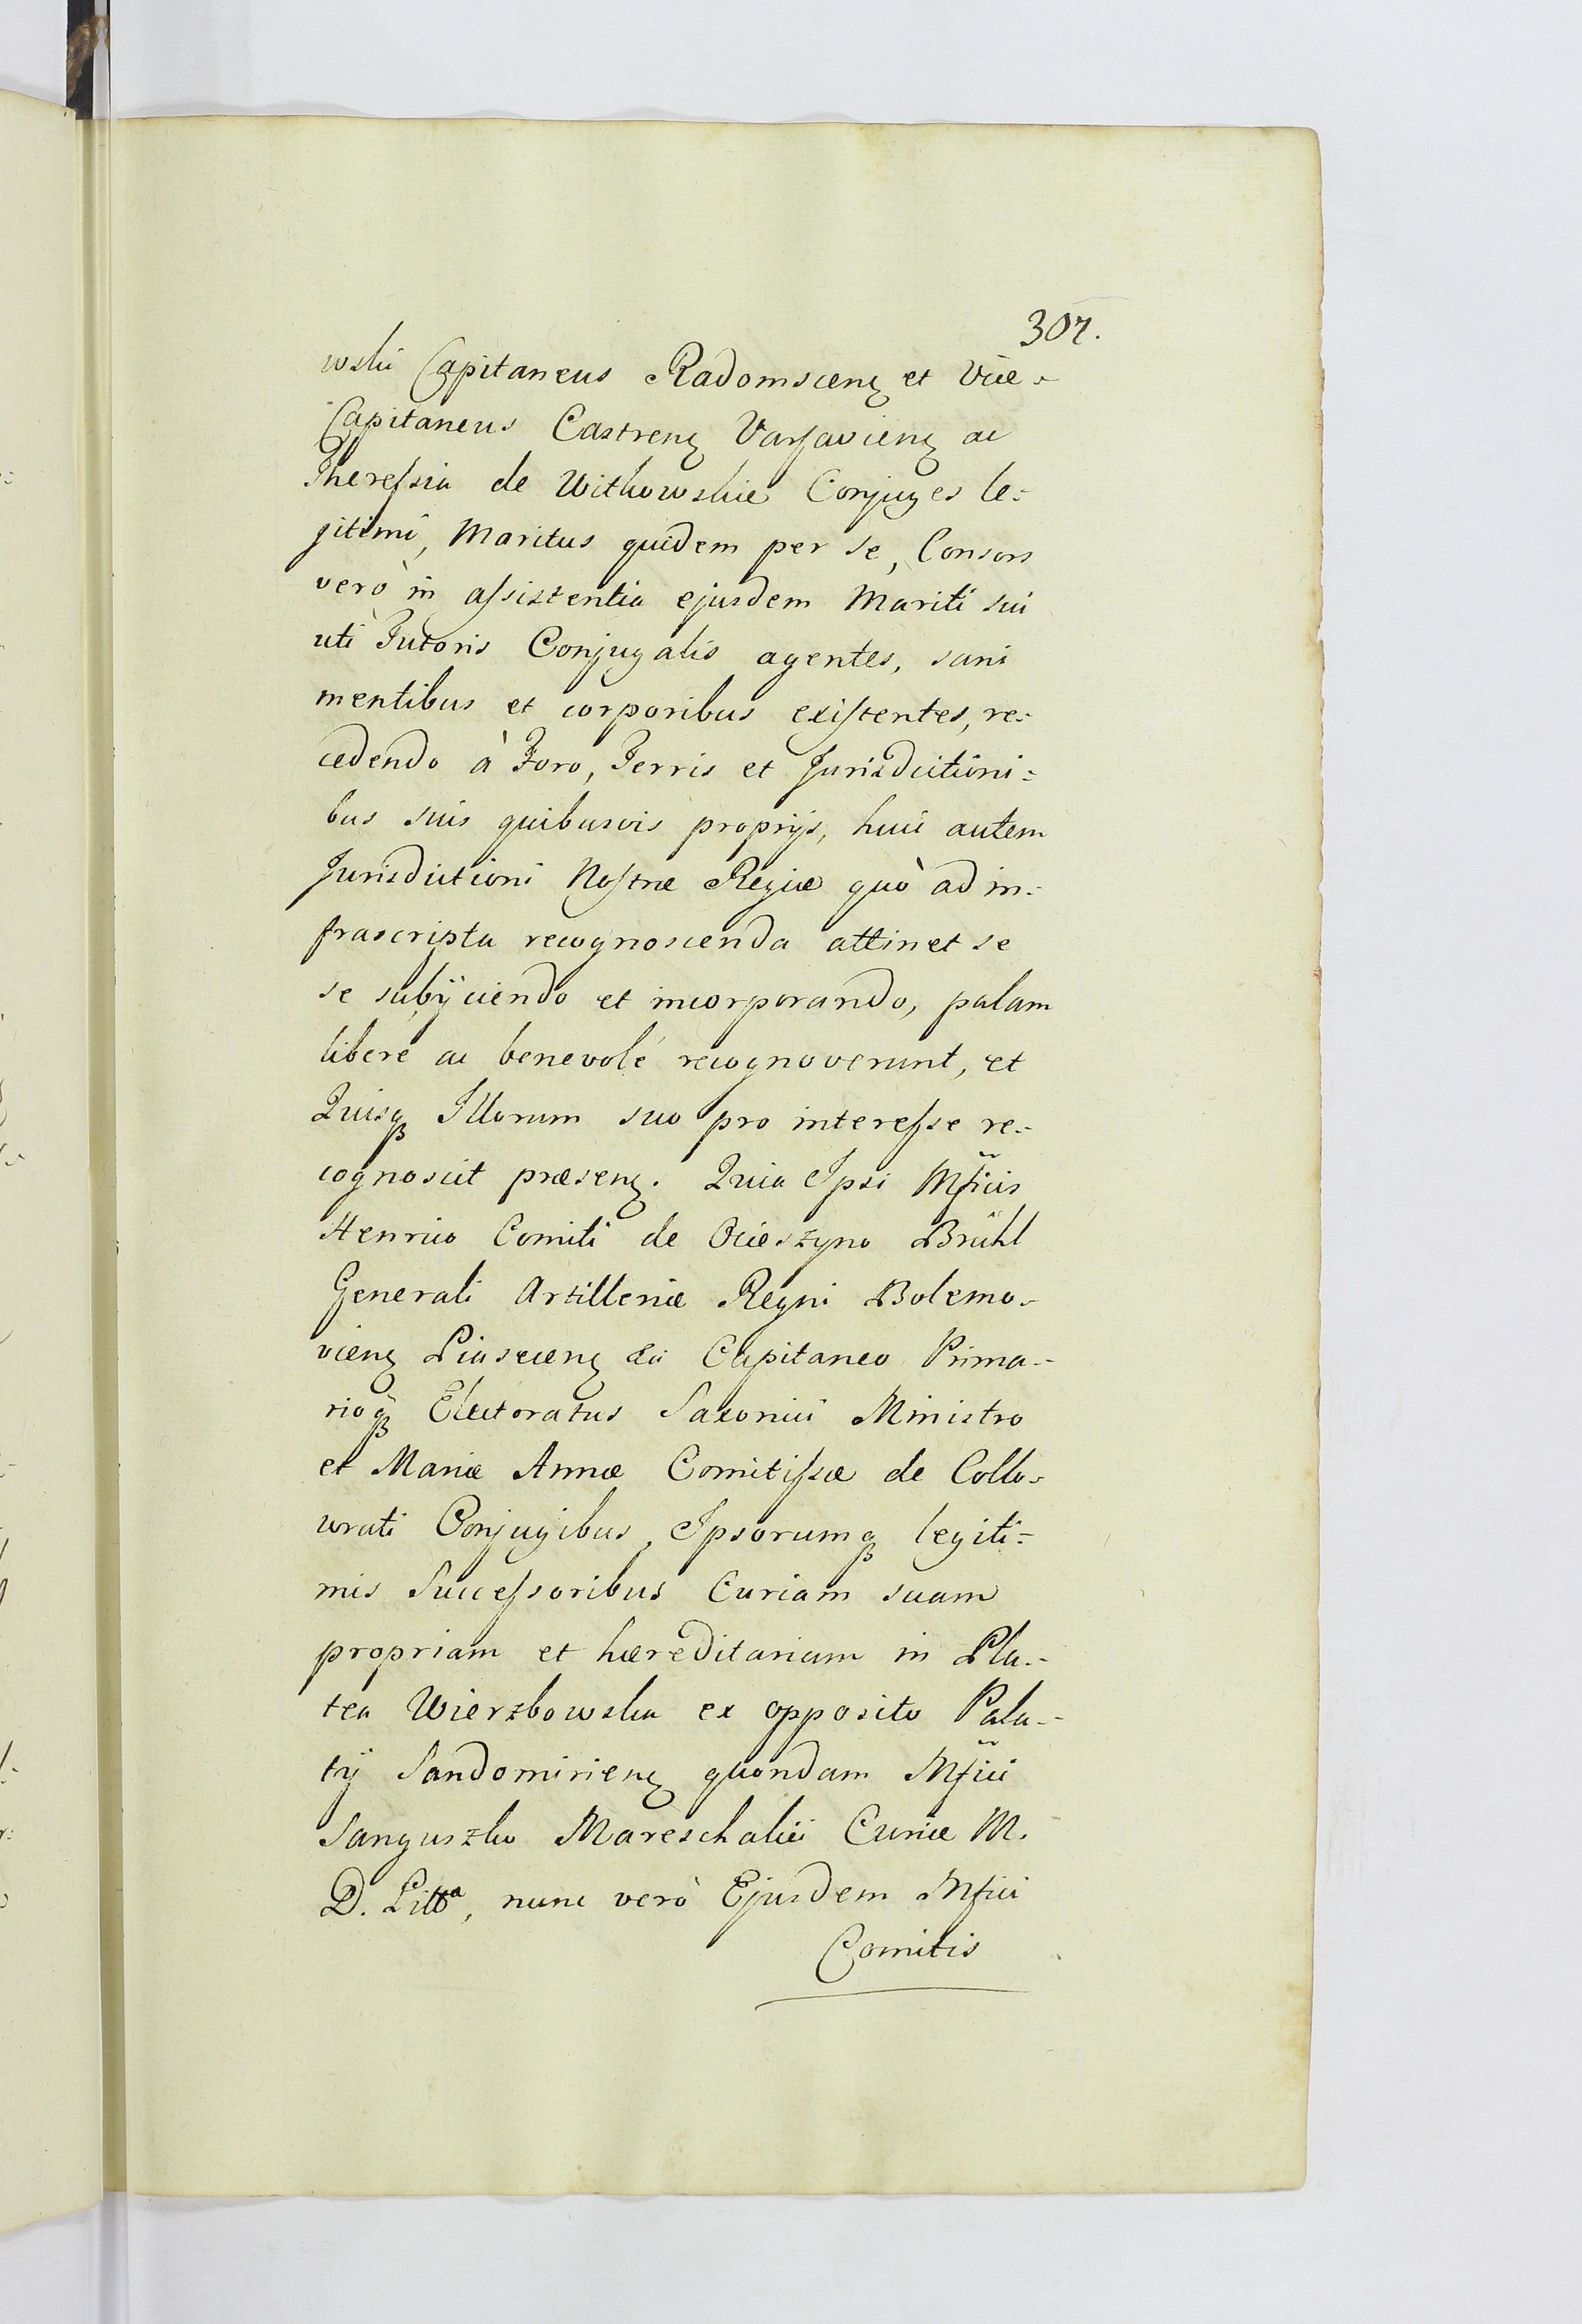 307.
wski Capitaneus Radomscenꝫ et Vice-
Capitaneus Castrenꝫ Varſavienꝫ ac
Thereſsia de Witkowskie Conjuges le-
gitimi, Maritus quidem per se, Consors
verò in aſsistentia ejusdem Mariti sui
uti Tutoris Conjugalis agentes, sani
mentibus et corporibus exiſtentes, re-
cedendo à Foro, Terris et Jurisdictioni-
bus suis quibusvis proprijs, huic autem
Jurisdictioni Noſtræ Regiæ quò ad in-
frascripta recognoscenda attinet se
se subÿciendo et incorporando, palam
libere ac benevolé recognoverunt, et
Quisqꝫ Illorum suo pro intereſse re-
cognoscit præsenꝫ. Quia Ipsi Mficis
Henrico Comiti de Ocieszyno Brühl
Generali Artilleriæ Regni Bolemo-
vienꝫ Piasecenꝫ &c Capitaneo Prima-
rioqꝫ Electoratus Saxonici Ministro
et Mariæ Annæ Comitiſsæ de Collo-
wrati Conjugibus, Ipsorumqꝫ legiti-
mis Succeſsoribus Curiam suam
propriam et hæreditariam in Pla-
tea Wierzbowska ex opposito Pala-
tÿ Sandomirienꝫ quondam Mfici
Sanguszko Mareschalci Curiæ M.
D. Littᵃ, nunc verò Ejusdem Mfici
Comitis